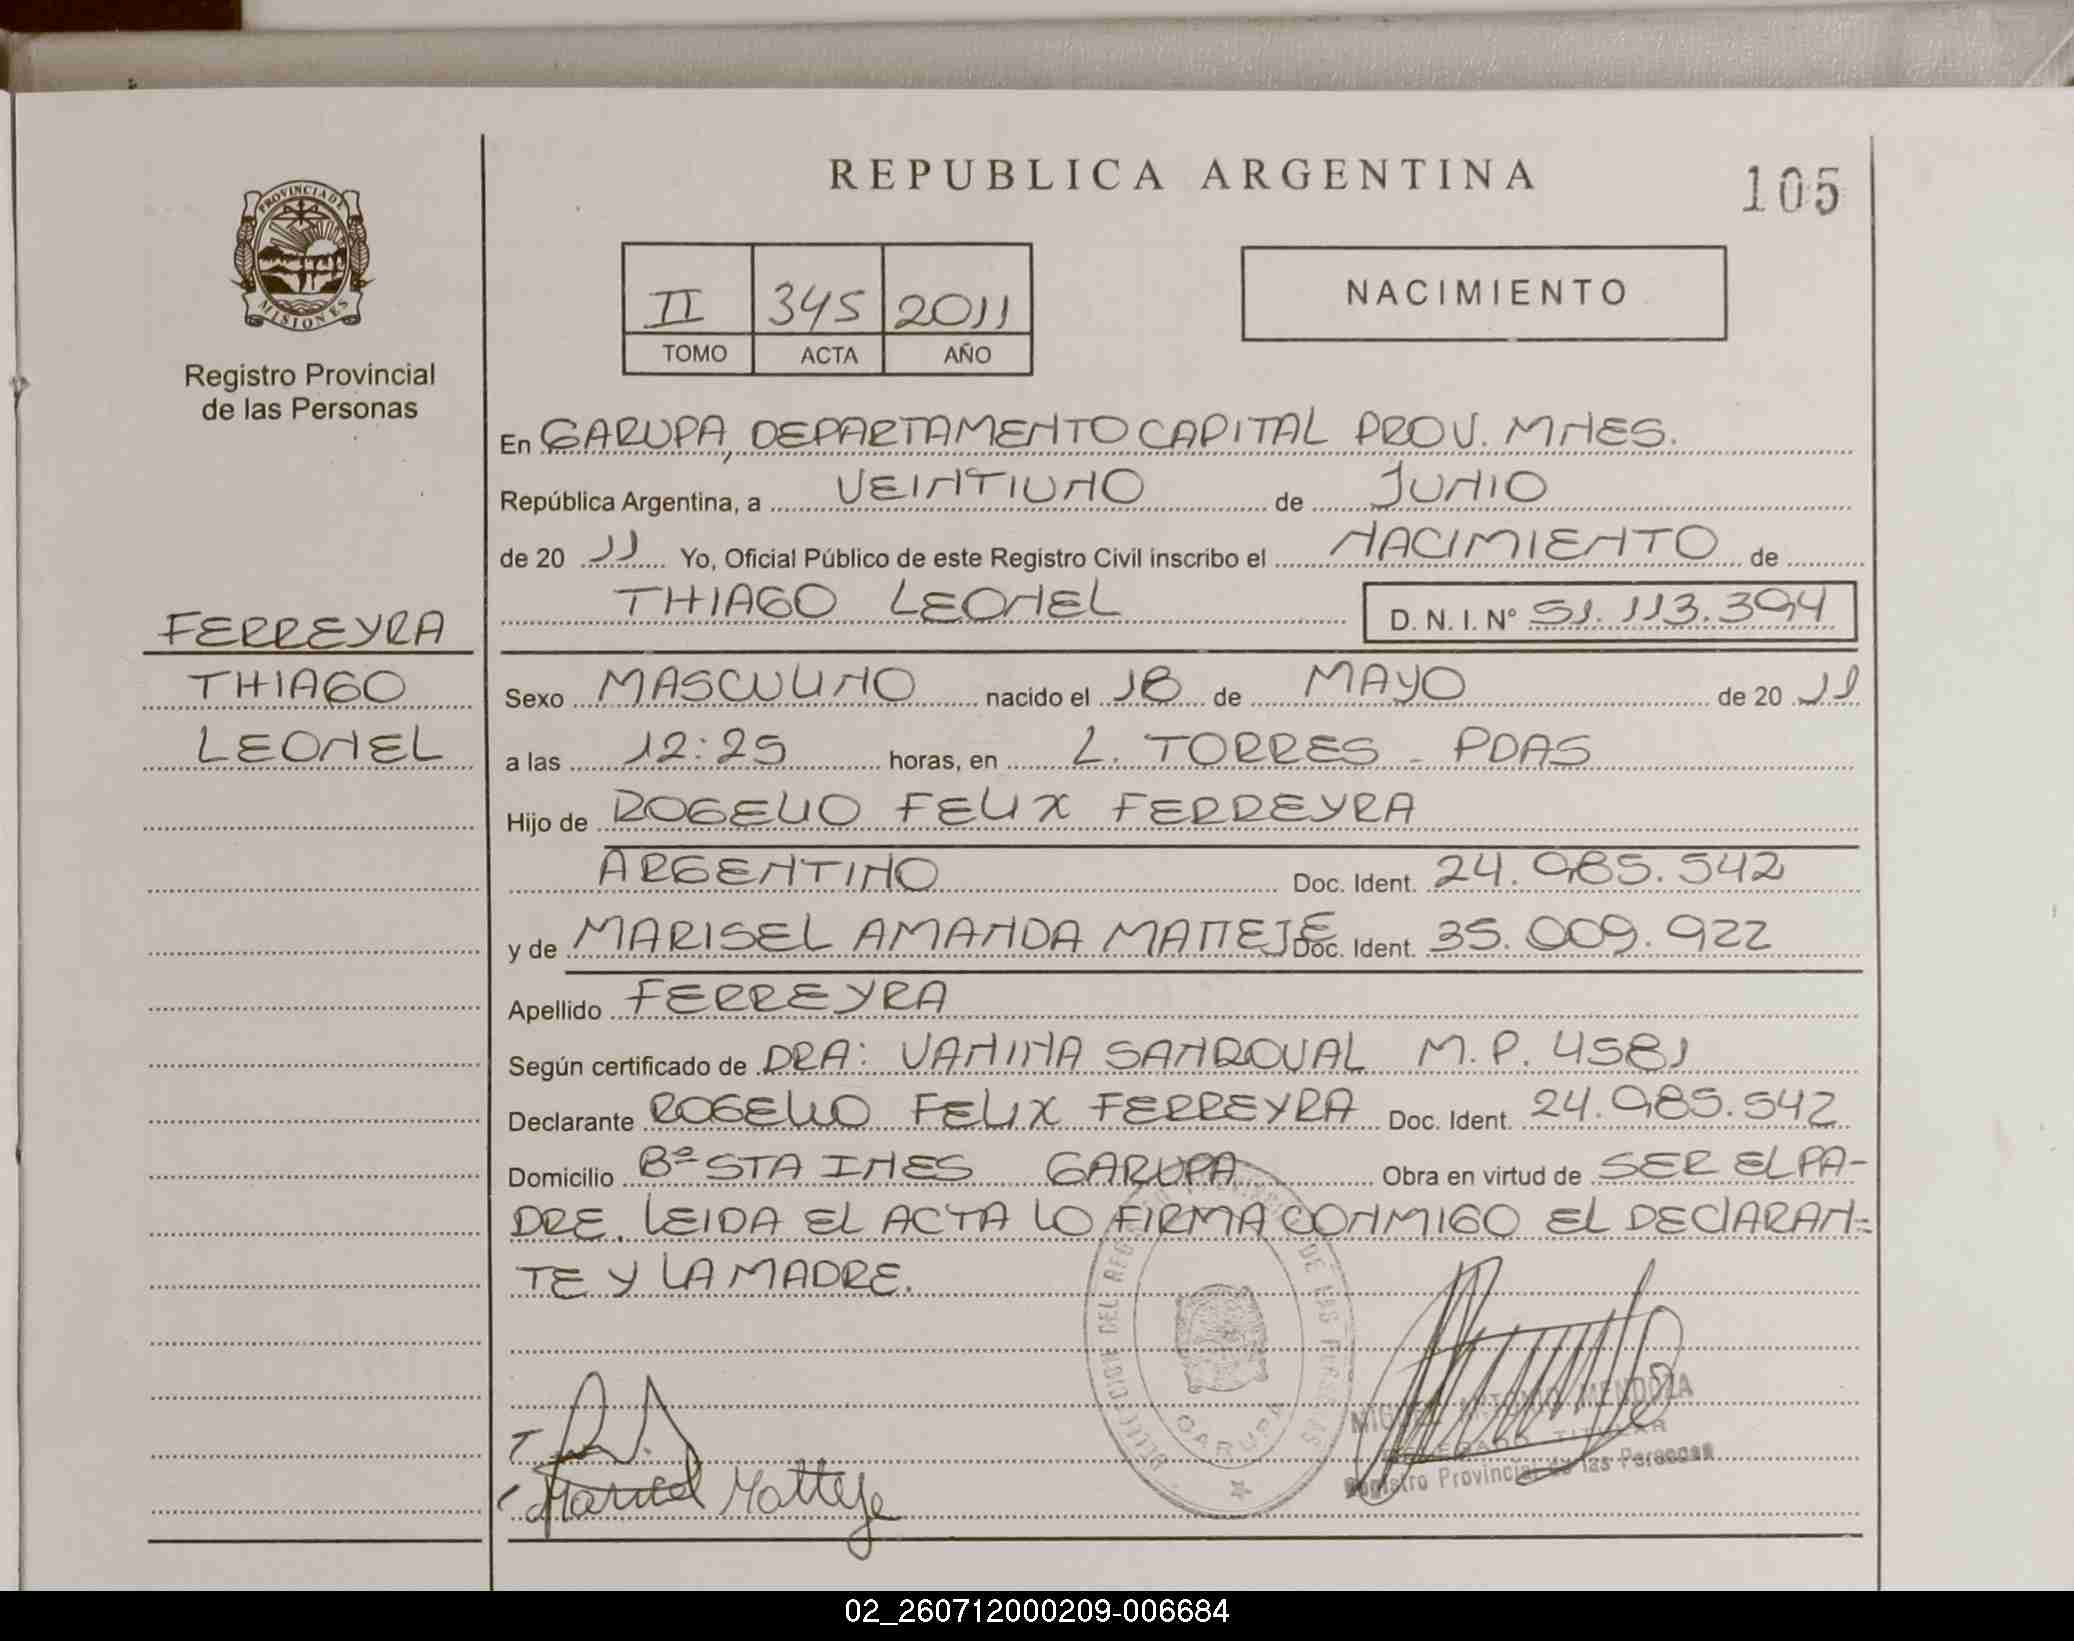 REPUBLICA ARGENTINA
105
PROVINCIA DE
MISIONES
Registro Provincial
de las Personas
II 345 2011
TOMO ACTA AÑO
NACIMIENTO
En GARUPA, DEPARTAMENTO CAPITAL PROV. MNES.
República Argentina, a VEINTIUNO de JUNIO
de 20 11 Yo, Oficial Público de este Registro Civil inscribo el NACIMIENTO de
THIAGO LEONEL D. N. I. N° 51.113.394
FERREYRA
THIAGO
LEONEL
Sexo MASCULINO nacido el 18 de MAYO de 20 11
a las 12:25 horas, en L. TORRES - PDAS
Hijo de ROGELIO FELIX FERREYRA
ARGENTINO Doc. Ident. 24.985.542
y de MARISEL AMANDA MATTEJE Doc. Ident. 35.009.922
Apellido FERREYRA
Según certificado de DRA: VANINA SANDOVAL M.P. 4581
Declarante ROGELIO FELIX FERREYRA Doc. Ident. 24.985.542
Domicilio Bº STA INES GARUPA Obra en virtud de SER EL PA-
DRE. LEIDA EL ACTA LO FIRMA CONMIGO EL DECLARAN-
TE Y LA MADRE.
DELEGACION DEL REGISTRO PROVINCIAL DE LAS PERSONAS
GARUPA
MIGUEL ANTONIO MENDOZA
DELEGADO TITULAR
Registro Provincial de las Personas
Marisel Matteje
02_260712000209-006684